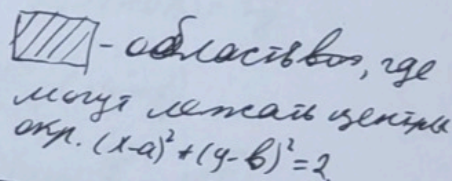 - область, где
могут лежать центры
окр. (x-a)²+(y-b)²=2